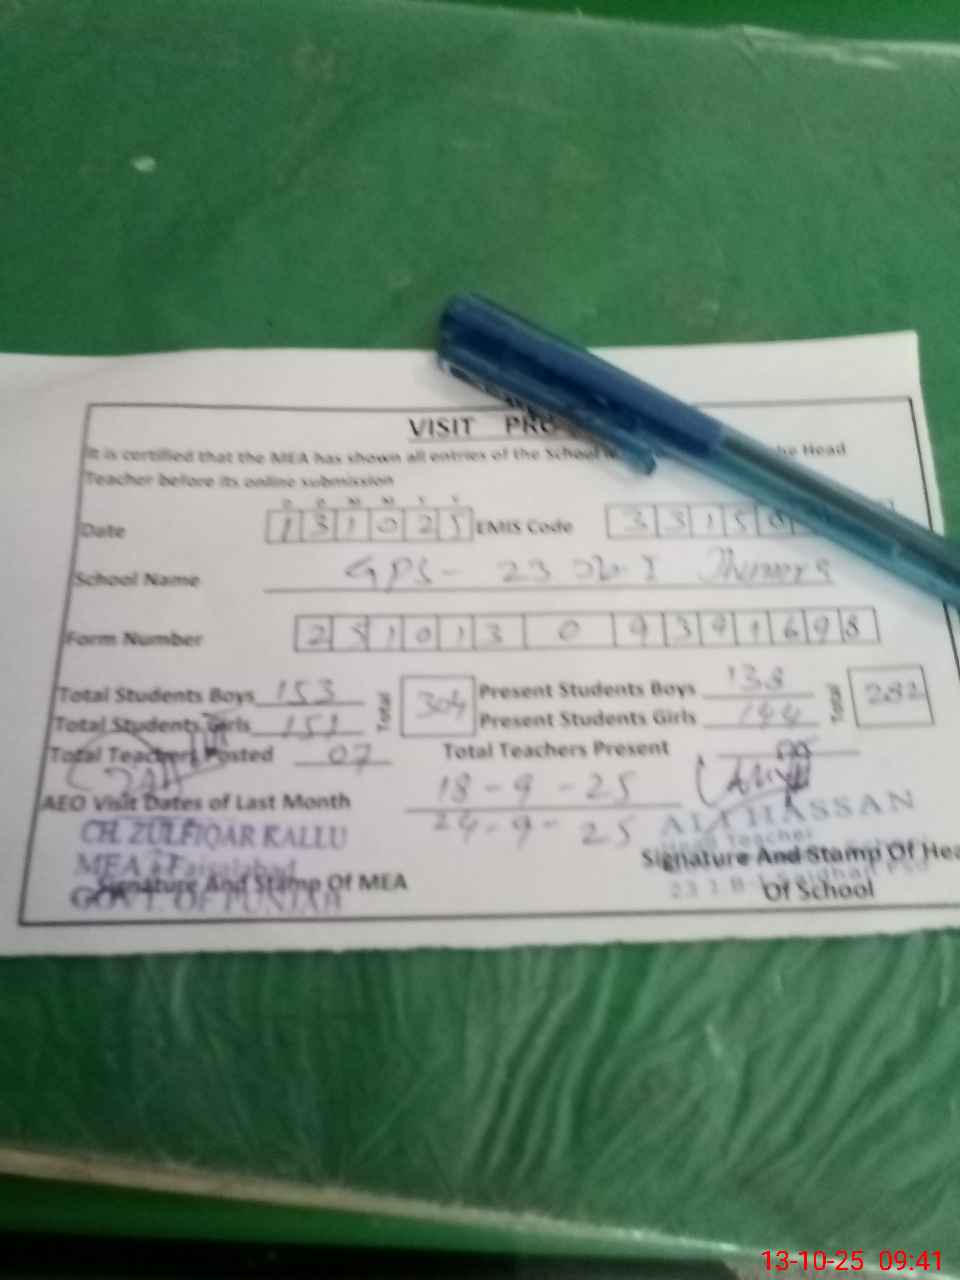 VISIT PRO
It is certified that the MEA has shown all entries of the School he Head
Teacher before its online submission
D D M M Y Y
Date 131025 EMIS Code 33150
School Name GPS - 23
Form Number 25101309391698
Total Students Boys 153 Total 304 Present Students Boys 138 Total 282
Total Students Girls 151 Present Students Girls 144
Total Teachers Posted 07 Total Teachers Present
AEO Visit Dates of Last Month 18-9-25
24-9-25
CH. ZULFIQAR KALLU
MEA Faisalabad
GOVT. OF PUNJAB
Signature And Stamp Of MEA
ALI HASSAN
Head Teacher
Signature And Stamp Of Hea
Of School
13-10-25 09:41